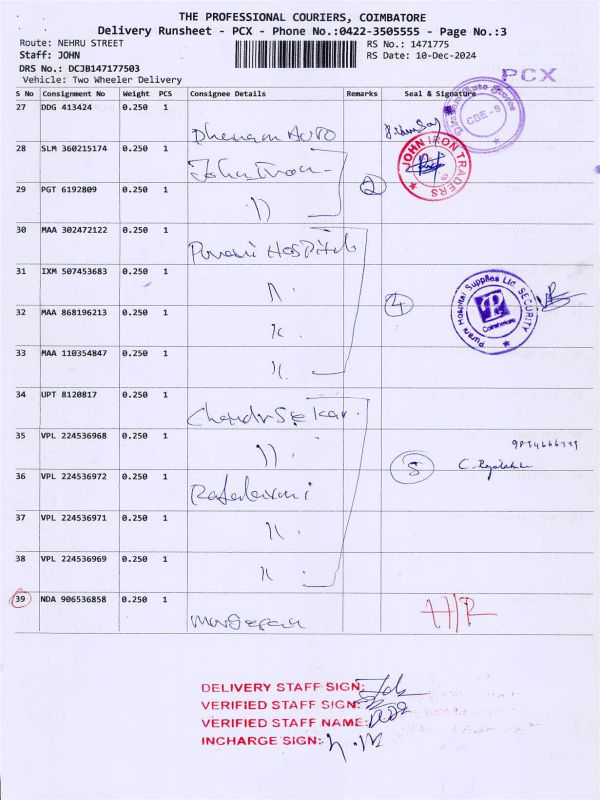 THE PROFESSIONAL COURIERS, COIMBATORE
Delivery Runsheet - PCX - Phone No.:0422-3505555 - Page No.:3
Route: NEHRU STREET RS No.: 1471775
Staff: JOHN RS Date: 10-Dec-2024
DRS No.: DCJB147177503
Vehicle: Two Wheeler Delivery
PCX
S No Consignment No Weight PCS Consignee Details Remarks Seal & Signature
27 DDG 413424 0.250 1
AUTO
CBE - 9
28 SLM 360215174 0.250 1
John Iron
JOHN IRON TRADERS
29 PGT 6192809 0.250 1
11 2
30 MAA 302472122 0.250 1
Purani Hospital
31 IXM 507453683 0.250 1
11
Purani Hospital Supplies Ltd SECURITY
Coimbatore
32 MAA 868196213 0.250 1
11 4
33 MAA 110354847 0.250 1
11
34 UPT 8120817 0.250 1
Chandrsekar
35 VPL 224536968 0.250 1
11 5
36 VPL 224536972 0.250 1
37 VPL 224536971 0.250 1
11
38 VPL 224536969 0.250 1
11
39 NDA 906536858 0.250 1
DELIVERY STAFF SIGN:
VERIFIED STAFF SIGN:
VERIFIED STAFF NAME:
INCHARGE SIGN: